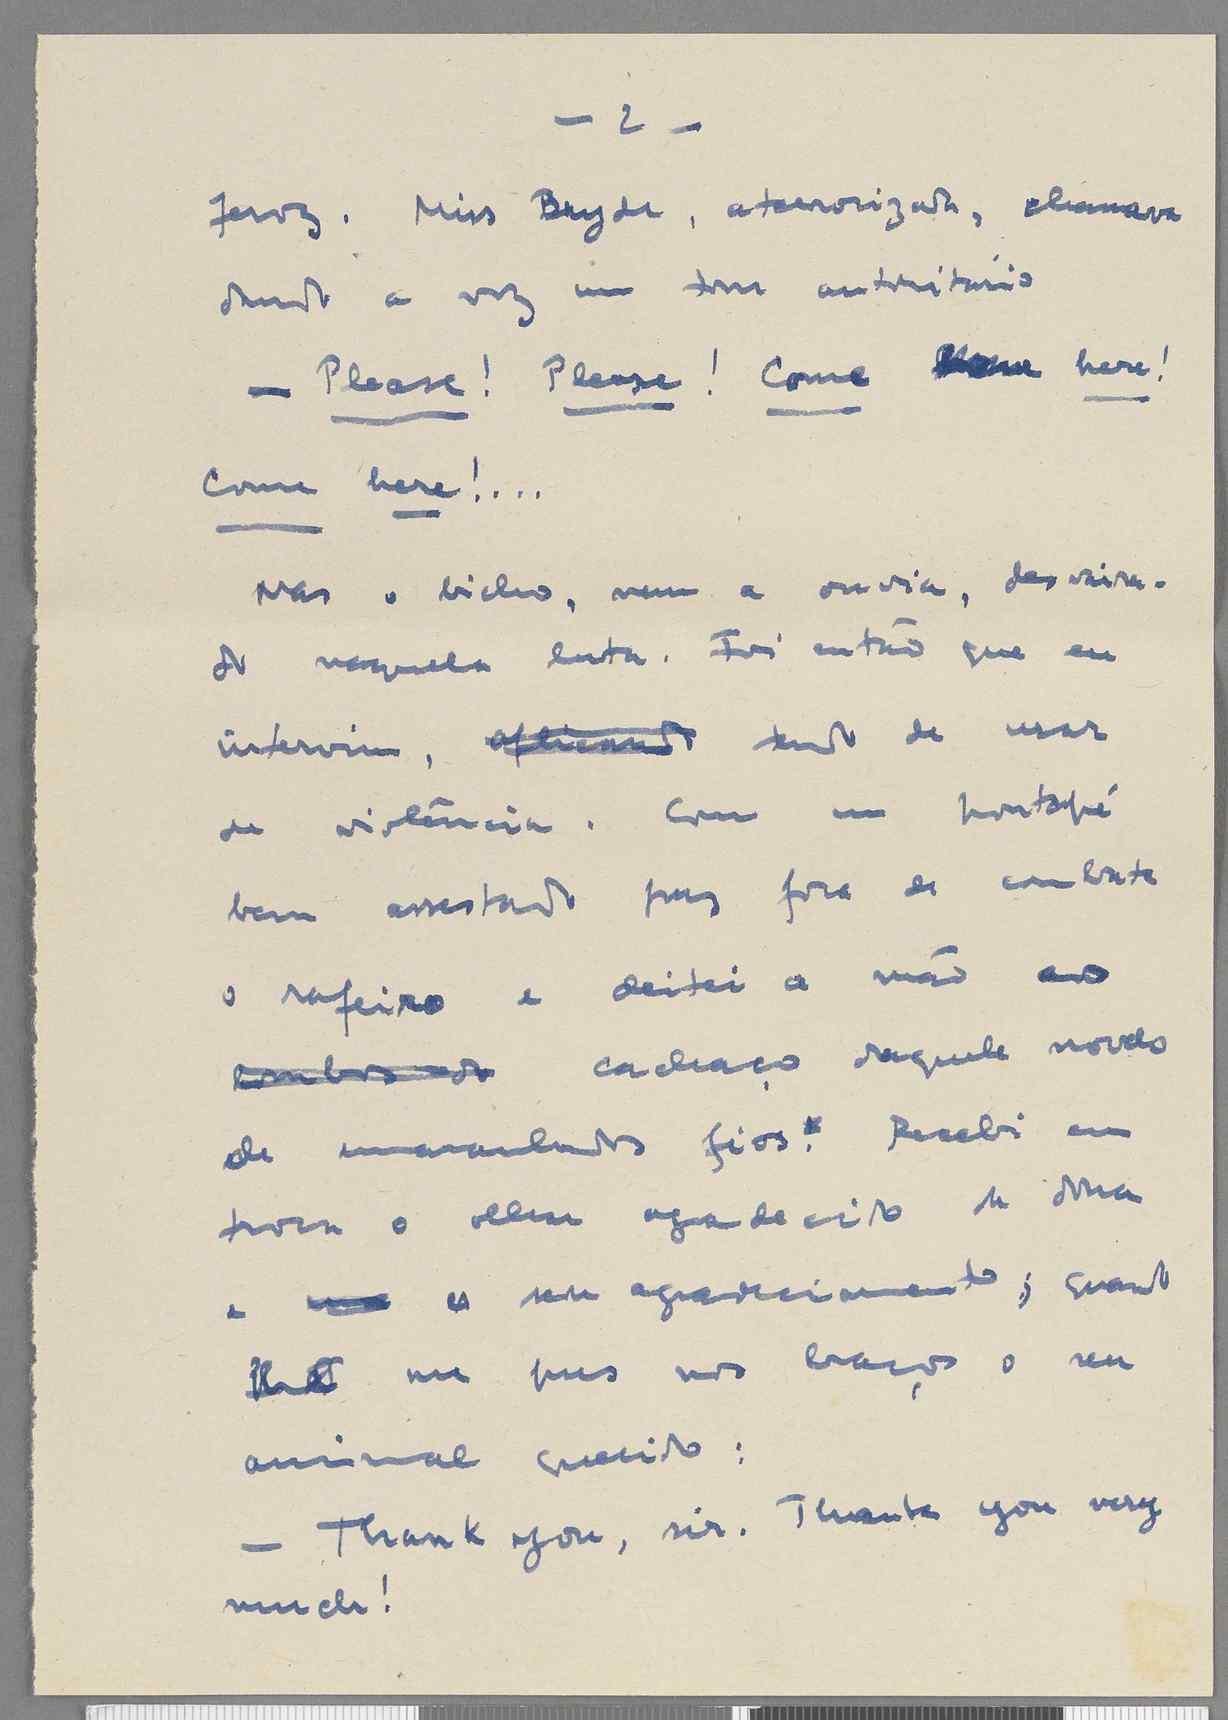 - 2 -
feroz. Miss Bryde, aterrorizada, chamava
dando a voz um tom autoritário
— Please! Please! Come here!
Come here!....
Mas o bicho, nem a ouvia, desvaira-
do naquela luta. Foi então que eu
intervim, aplicando tendo de usar
de violência. Com um pontapé
bem assestado pus fora de combate
o rafeiro e deitei a mão ao
lombos do cachaço daquele novelo
de emaranhados fios. Recebi em
troca o olhar agradecido da dona
e o seu agradecimento; quando
me pus nos braços o seu
animal querido:
— Thank you, sir. Thanks you very
much!